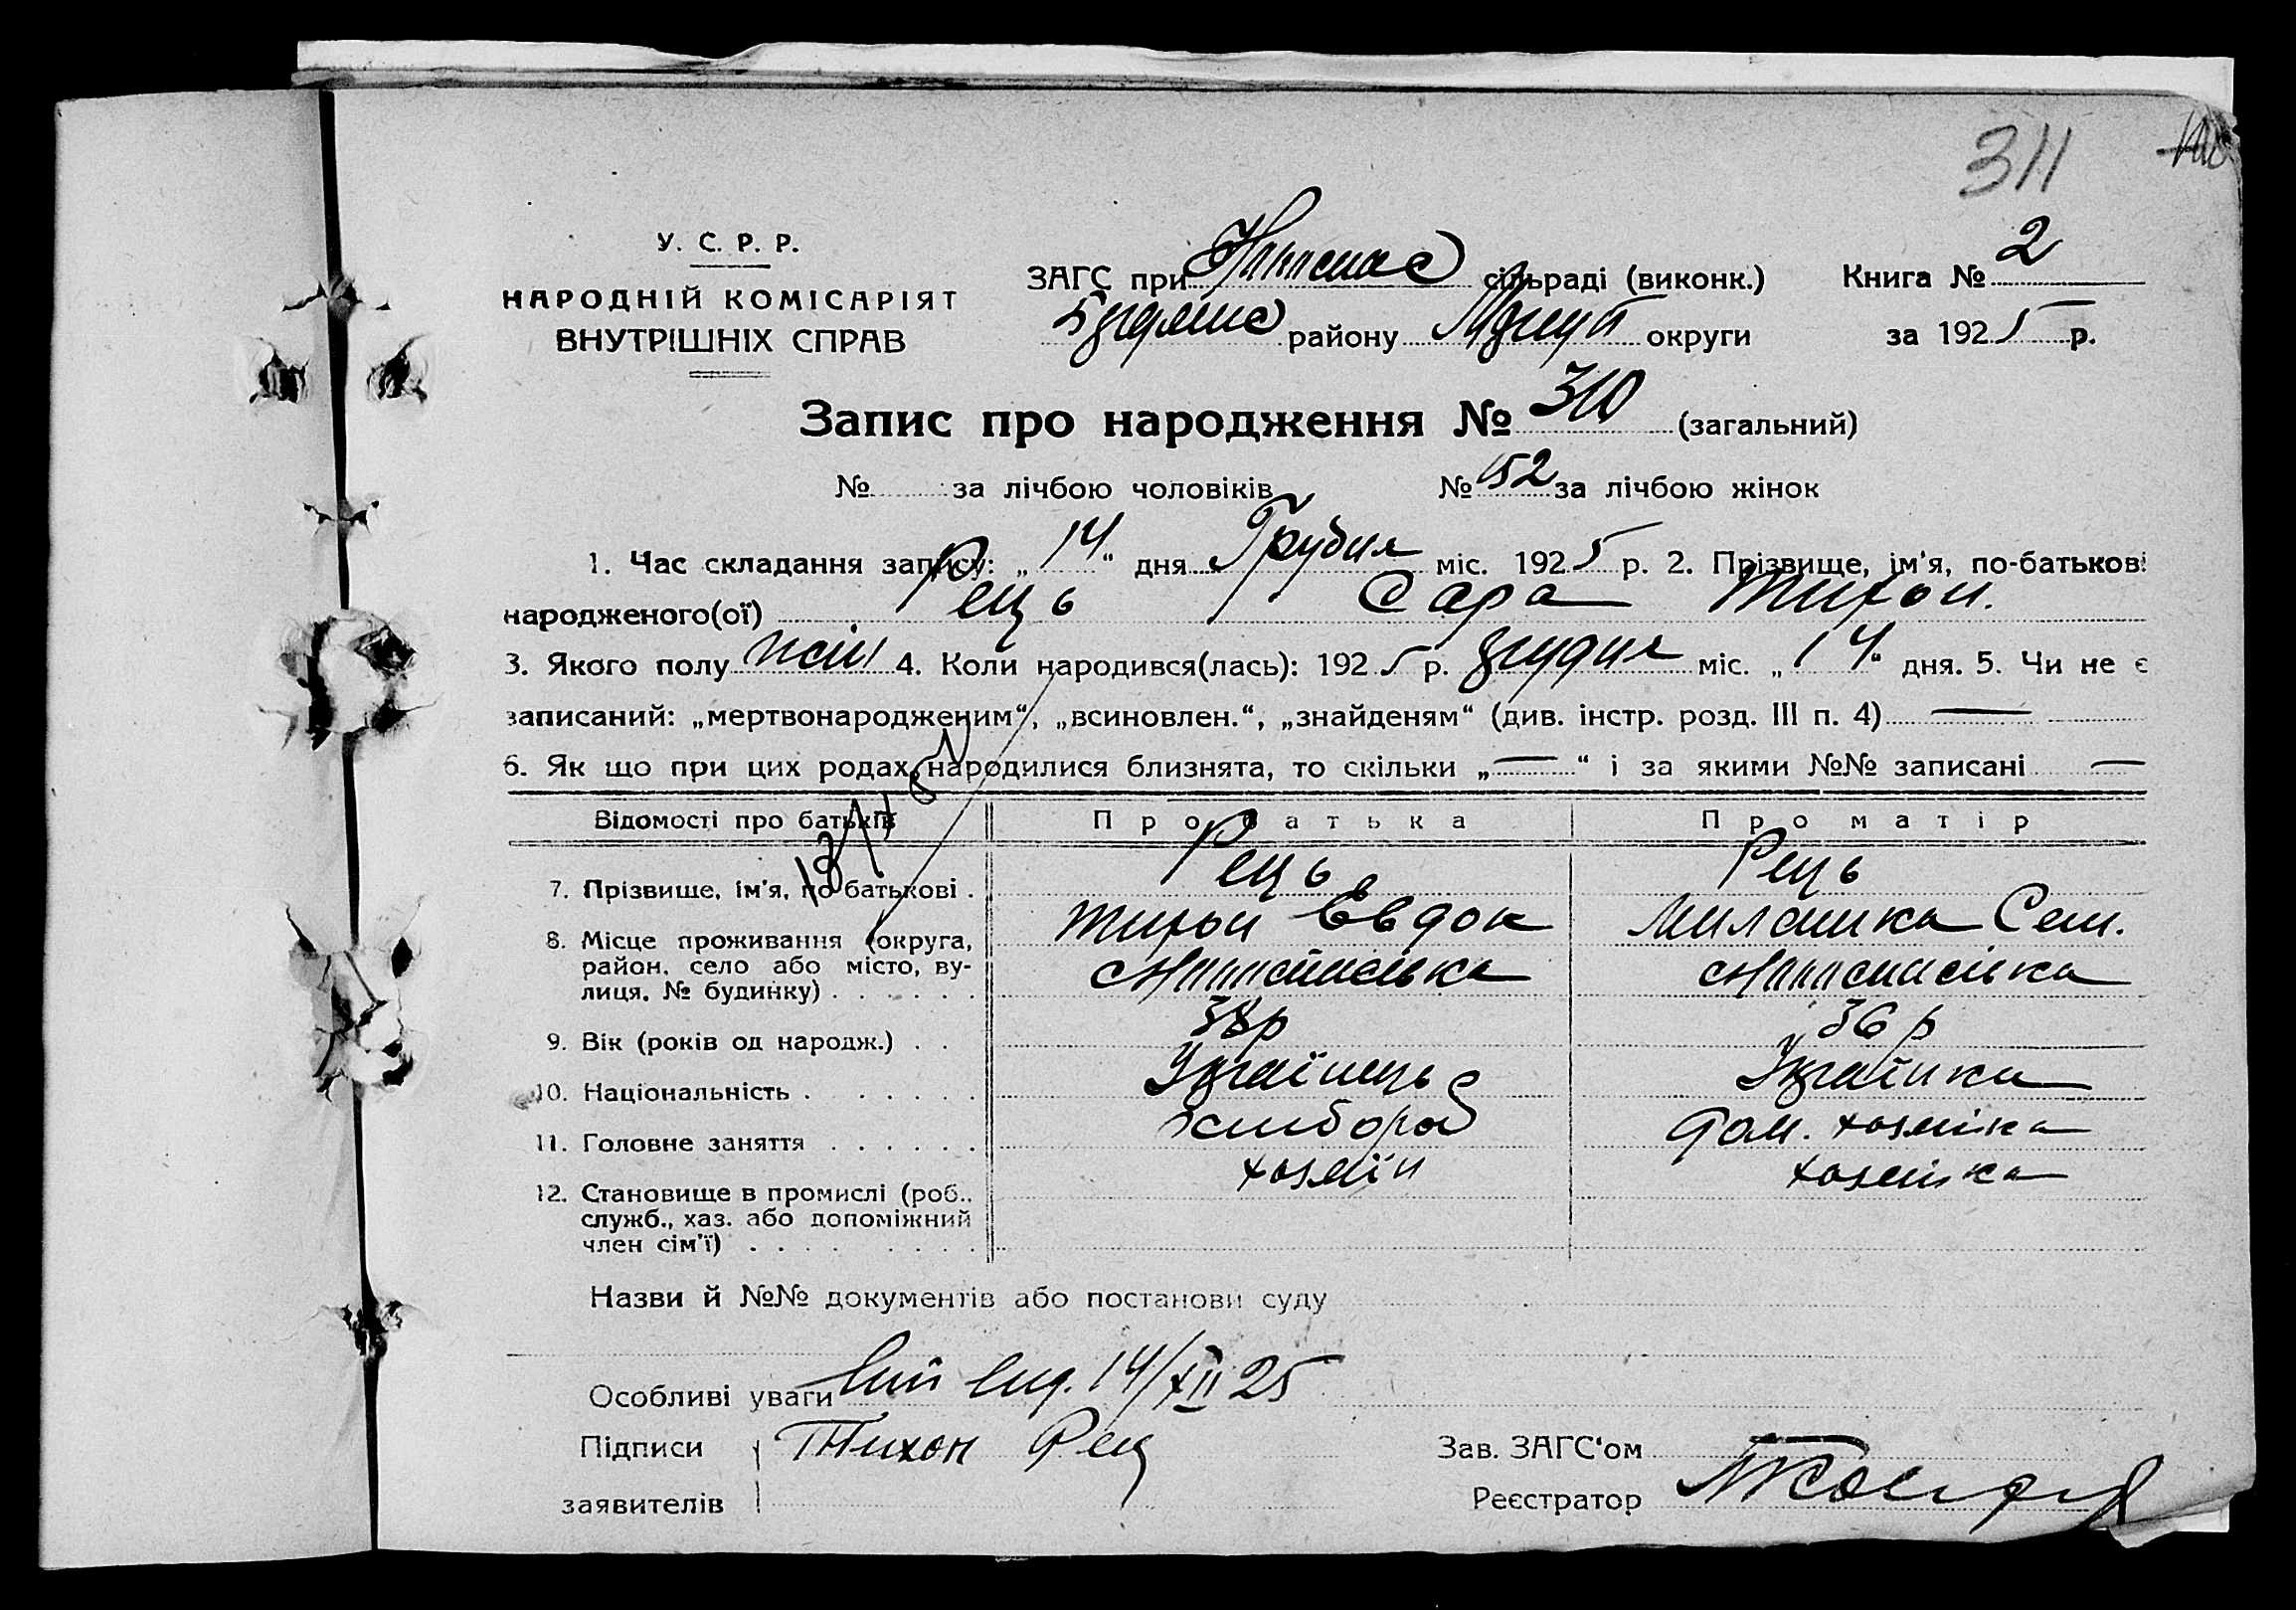 311
У. С. Р. Р.
НАРОДНІЙ КОМІСАРІЯТ
ВНУТРІШНІХ СПРАВ
ЗАГС при сільраді (виконк.)
району округи
Книга № 2
за 1925 р.
Запис про народження № 310 (загальний)
№ за лічбою чоловіків № 152 за лічбою жінок
1. Час складання запису: „14“ дня Грудня міс. 1925 р. 2. Прізвище, ім'я, по-батькові
народженого(ої) Рець Сара Тихон.
3. Якого полу жін 4. Коли народився(лась): 1925 р. грудня міс. „14“ дня. 5. Чи не є
записаний: „мертвонародженим“, „всиновлен.“, „знайденям“ (див. інстр. розд. III п. 4) —
6. Як що при цих родах народилися близнята, то скільки „—“ і за якими №№ записані —
Відомості про батьків Про батька Про матір
7. Прізвище, ім'я, по батькові . Рець Рець
Тихон Євдок Миланика Сем.
8. Місце проживання (округа,
район, село або місто, ву-
лиця, № будинку) . . . . . .
9. Вік (років од народж.) . . 38р 36 р
10. Національність . . . . . . Українець Українка
11. Головне заняття . . . . . . хлібороб дом. хозяйка
12. Становище в промислі (роб., хозяїн хозяйка
служб., хаз. або допоміжний
член сім'ї) . . . . . . . .
Назви й №№ документів або постанови суду
Особливі уваги 14/XII 25
Підписи Тихон Рец
заявителів
Зав. ЗАГС‘ом
Реєстратор